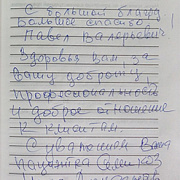 С большой благод
Большое спасибо
Павел Валерьевич.
Здоровья Вам за
Вашу доброту,
профессионально
и доброе отношение
К клиентам.
С уважением Ваша
пациентка